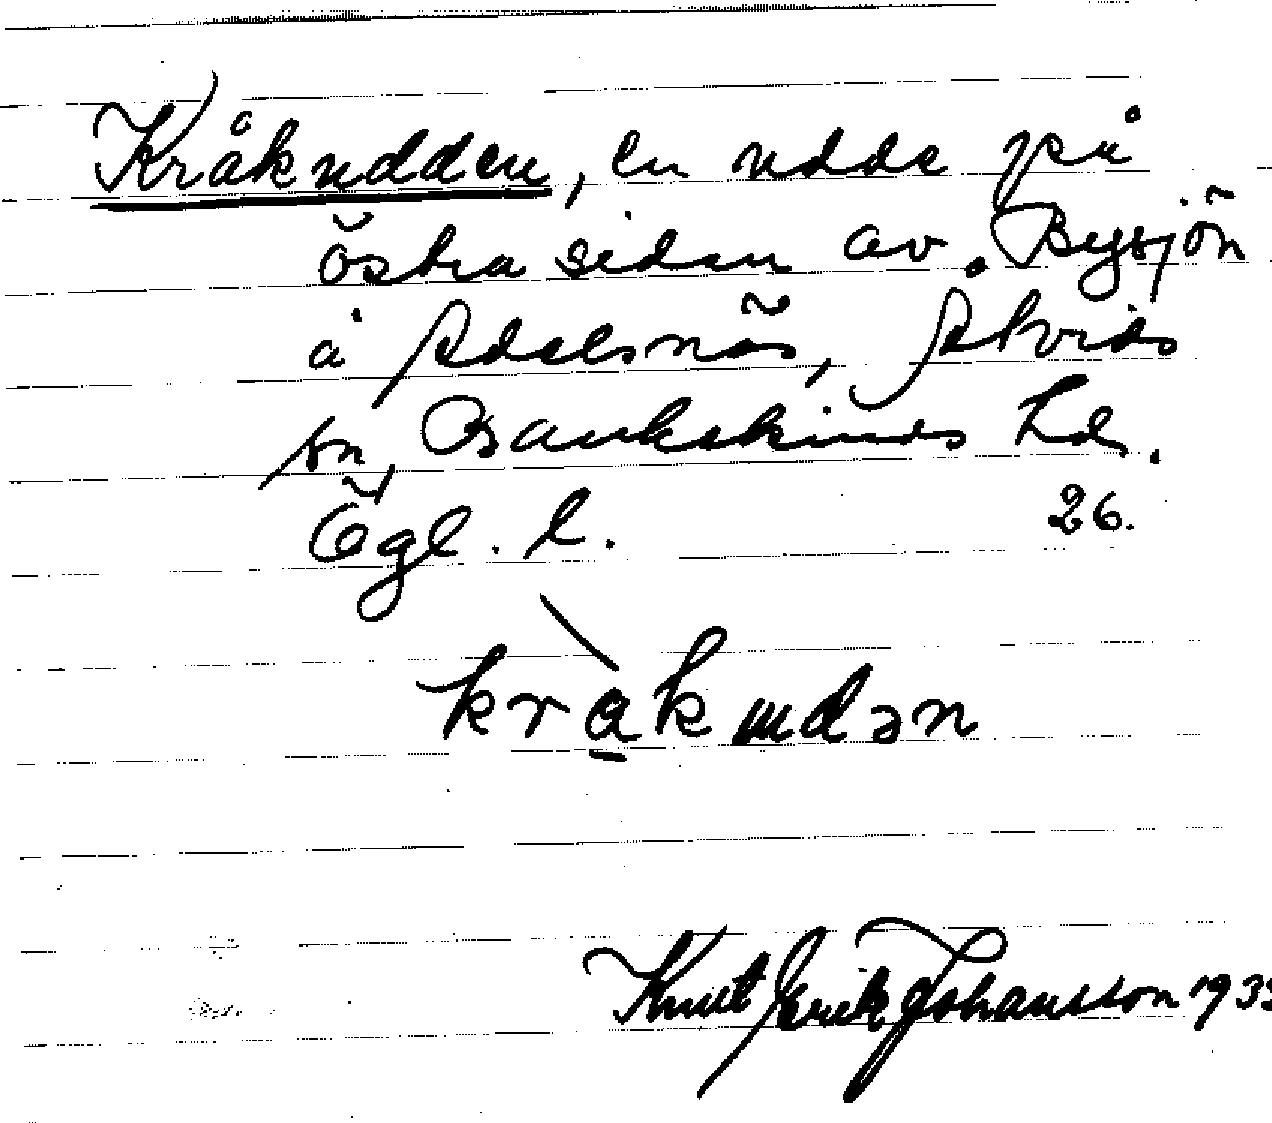 Kråkudden, en udde på
östra sidan av Bysjön
å Adelsnäs, Åtvids
sn, Bankekinds hd.
Ögl. l. 26.
kràkudən
Knut Erik Johansson 1933